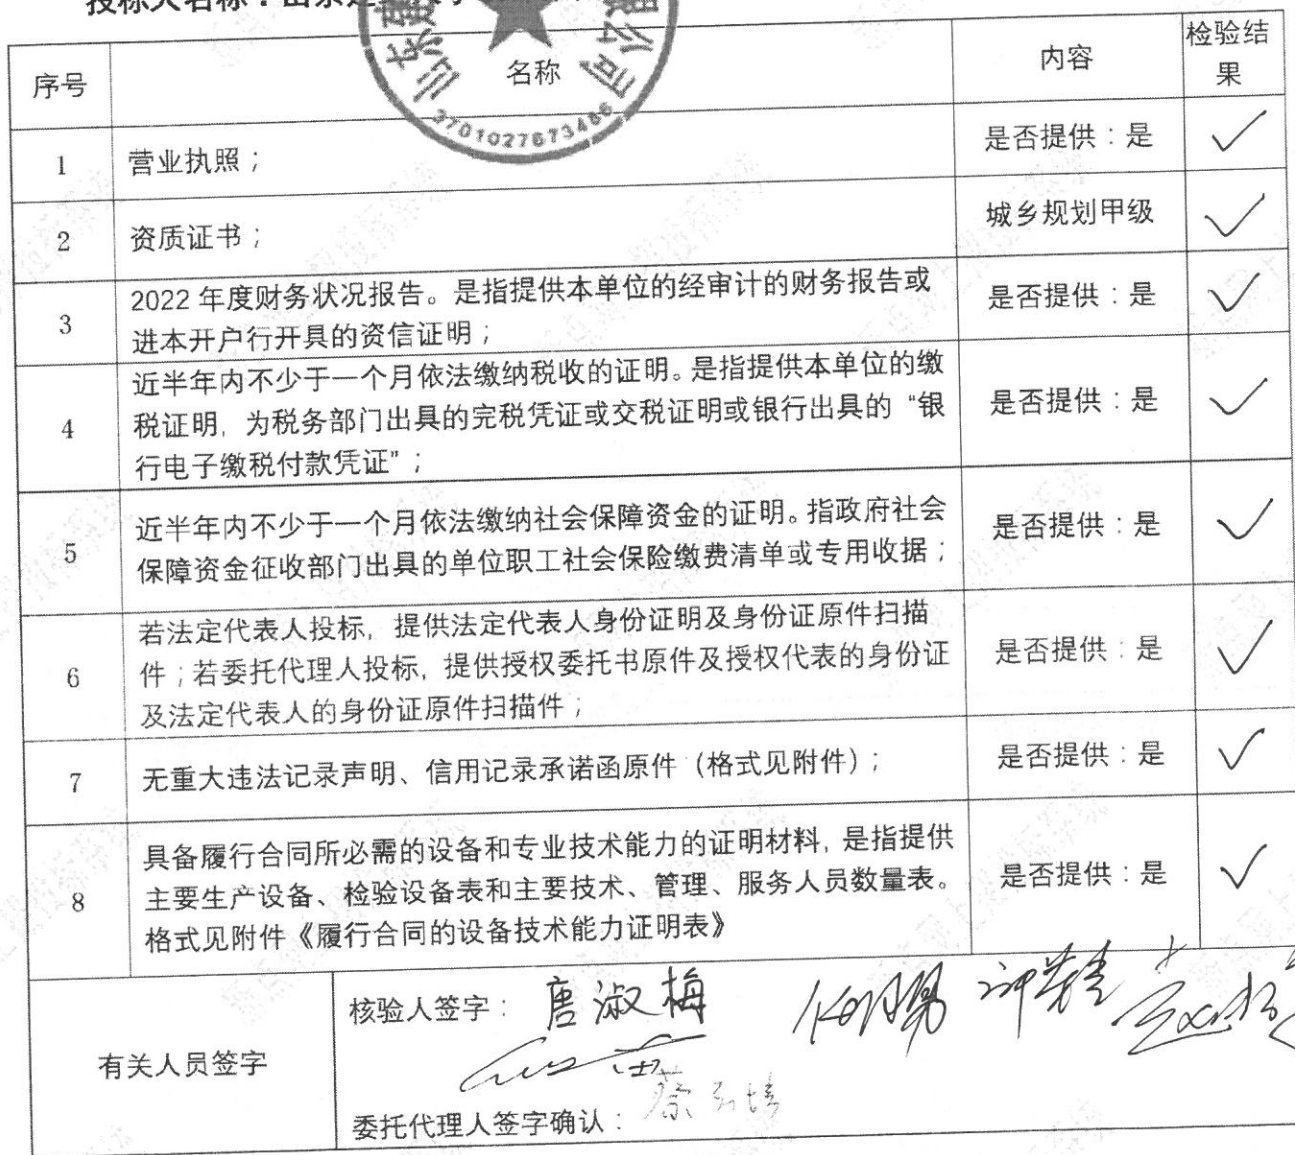 投标人名称：山东建
3701027673486
序号
名称
内容
检验结
果
1
营业执照；
是否提供：是
2
资质证书；
城乡规划甲级
3
2022 年度财务状况报告。是指提供本单位的经审计的财务报告或
进本开户行开具的资信证明；
是否提供：是
4
近半年内不少于一个月依法缴纳税收的证明。是指提供本单位的缴
税证明，为税务部门出具的完税凭证或交税证明或银行出具的“银
行电子缴税付款凭证”；
是否提供：是
5
近半年内不少于一个月依法缴纳社会保障资金的证明。指政府社会
保障资金征收部门出具的单位职工社会保险缴费清单或专用收据；
是否提供：是
6
若法定代表人投标，提供法定代表人身份证明及身份证原件扫描
件；若委托代理人投标，提供授权委托书原件及授权代表的身份证
及法定代表人的身份证原件扫描件；
是否提供：是
7
无重大违法记录声明、信用记录承诺函原件（格式见附件）；
是否提供：是
8
具备履行合同所必需的设备和专业技术能力的证明材料，是指提供
主要生产设备、检验设备表和主要技术、管理、服务人员数量表。
格式见附件《履行合同的设备技术能力证明表》
是否提供：是
有关人员签字
核验人签字：唐淑梅
委托代理人签字确认：蔡